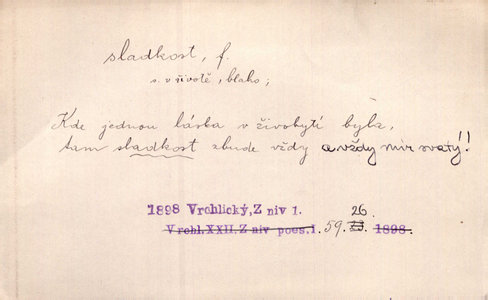 sladkost, f.
s. v životě, blaho;
Kde jednou láska v živobytí byla,
tam sladkost zbude vždy a vždy mír svatý!!
1898 Vrchlický, Z niv 1. 26.
Vrchl. XXII. Z niv poes. 1. 59. 1898.